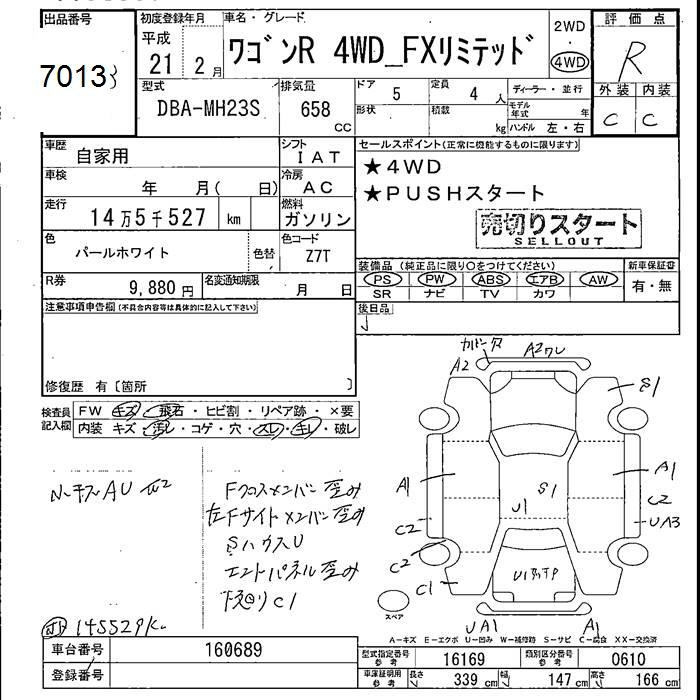 出品番号
7013
初度登録年月
平成
21 2月
車名・グレード
ワゴンR 4WD_FXリミテッド
2WD
・
4WD
評価点
R
外装 内装
C C
型式
DBA-MH23S
排気量
658
CC
ドア
5
定員
4 人
ディーラー・並行
形状
積載
kg
モデル年式 年
ハンドル 左・右
車歴
自家用
シフト
IAT
車検
年 月( 日)
冷房
AC
走行
14万5千527 km
燃料
ガソリン
色
パールホワイト
色替
色コード
Z7T
R券
9,880円
名変通知期限
月 日
セールスポイント(正常に機能するものに限ります)
★4WD
★PUSHスタート
売切りスタート
SELLOUT
装備品 (純正品に限り○をつけてください)
PS PW ABS エアB AW
SR ナビ TV カワ
新車保証書
有・無
後日品
注意事項申告欄(不具合内容等は具体的に記入して下さい)
修復歴 有〔箇所 〕
検査員
記入欄
FW キズ・飛石・ヒビ割・リペア跡・×要
内装 キズ・汚レ・コゲ・穴・スレ・キレ・破レ
Fクロスメンバー歪み
左Fサイドメンバー歪み
SハウスU
エンドパネル歪み
下廻りC1
145529K
A2
S1
A1
A1
S1
U1
C2
C2
UA3
C2
C1
UA1
A1
スペア
A-キズ E-エクボ U-凹み W-補修跡 S-サビ C-腐食 XX-交換済
車台番号
160689
登録番号
型式指定番号
参考
16169
類別区分番号
参考
0610
車庫証明用
参考
長さ
339 cm
幅
147 cm
高さ
166 cm